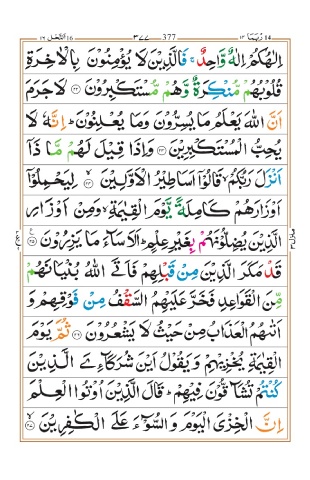 ١٤ رُبَمَا ١٣ 377 ٣٧٧ النَّحْل 16 ١٦
اِلٰهُكُمْ اِلٰهٌ وَّاحِدٌ ۚ فَالَّذِيْنَ لَا يُؤْمِنُوْنَ بِالْاٰخِرَةِ
قُلُوْبُهُمْ مُّنْكِرَةٌ وَّهُمْ مُّسْتَكْبِرُوْنَ ۝۲۲ لَا جَرَمَ
اَنَّ اللّٰهَ يَعْلَمُ مَا يُسِرُّوْنَ وَمَا يُعْلِنُوْنَ ؕ اِنَّهٗ لَا
يُحِبُّ الْمُسْتَكْبِرِيْنَ ۝۲۳ وَاِذَا قِيْلَ لَهُمْ مَّا ذَا
اَنْزَلَ رَبُّكُمْ ۙ قَالُوْۤا اَسَاطِيْرُ الْاَوَّلِيْنَ ۝۲۴ لِيَحْمِلُوْۤا
اَوْزَارَهُمْ كَامِلَةً يَّوْمَ الْقِيٰمَةِ ۙ وَمِنْ اَوْزَارِ
الَّذِيْنَ يُضِلُّوْنَهُمْ بِغَيْرِ عِلْمٍ ؕ اَلَا سَآءَ مَا يَزِرُوْنَ ۝۲۵
قَدْ مَكَرَ الَّذِيْنَ مِنْ قَبْلِهِمْ فَاَتَى اللّٰهُ بُنْيَانَهُمْ
مِّنَ الْقَوَاعِدِ فَخَرَّ عَلَيْهِمُ السَّقْفُ مِنْ فَوْقِهِمْ وَ
اَتٰىهُمُ الْعَذَابُ مِنْ حَيْثُ لَا يَشْعُرُوْنَ ۝۲۶ ثُمَّ يَوْمَ
الْقِيٰمَةِ يُخْزِيْهِمْ وَيَقُوْلُ اَيْنَ شُرَكَآءِىَ الَّذِيْنَ
كُنْتُمْ تُشَآقُّوْنَ فِيْهِمْ ؕ قَالَ الَّذِيْنَ اُوْتُوا الْعِلْمَ
اِنَّ الْخِزْىَ الْيَوْمَ وَالسُّوْٓءَ عَلَى الْكٰفِرِيْنَ ۝۲۷